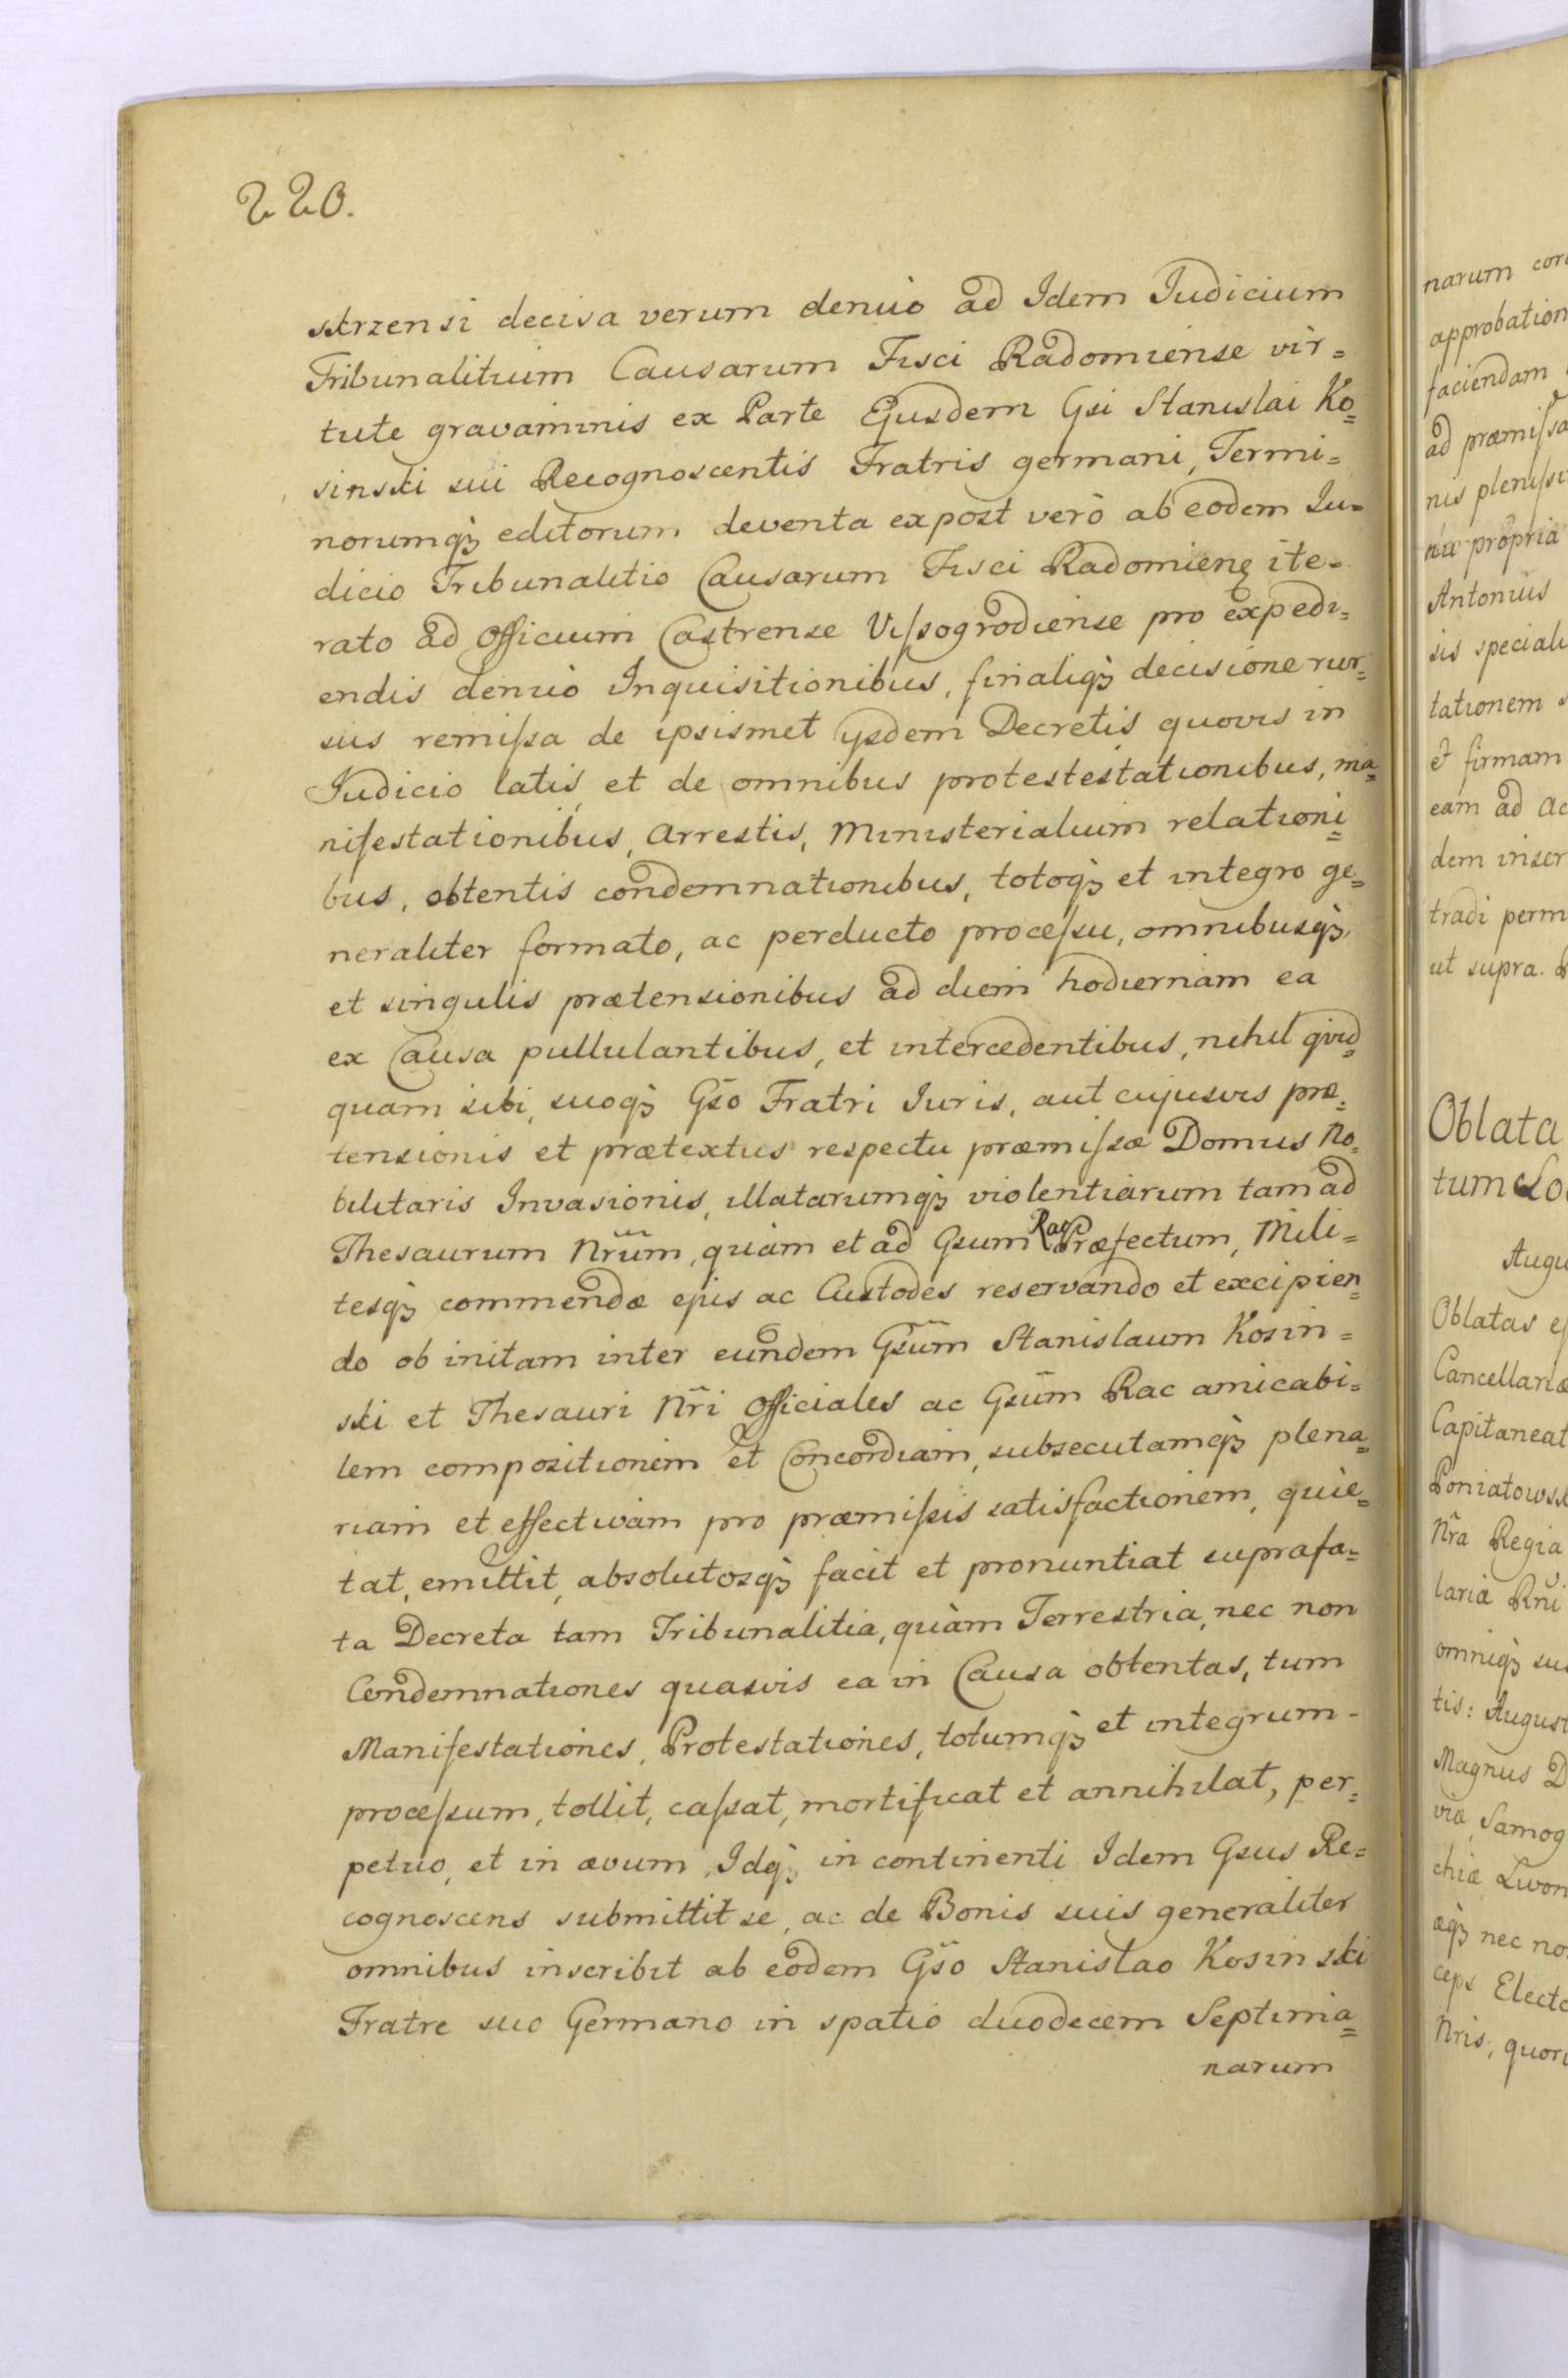 220.
skrzensi decisa verum denuò ad Idem Iudicium
Tribunalitium Causarum Fisci Radomiense vir=
tute gravaminis ex Parte Ejusdem Gsi Stanislai Ko=
sinski sui Recognoscentis Fratris germani, Termi=
norumqꝫ editorum deventa expost verò ab eodem Iu=
dicio Tribunalitio Causarum Fisci Radomienꝫ ite=
rato ad Officium Castrense Vissogrodiense pro expedi=
endis denuò Inquisitionibus, finaliqꝫ decisione rur=
sus remissa de ipsismet ijsdem Decretis quovis in
Iudicio latis, et de omnibus protestestationibus, ma=
nifestationibus, Arrestis, Ministerialium relationi=
bus, obtentis condemnationibus, totoqꝫ et integro ge=
neraliter formato, ac perducto processu, omnibusqꝫ
et singulis prætensionibus ad diem hodiernam ea
ex Causa pullulantibus, et intercedentibus, nihil quid=
quam sibi, suoqꝫ Gsõ Fratri Iuris, aut cujusvis præ=
tensionis et prætextus respectu præmissæ Domus No=
bilitaris Invasionis, illatarumqꝫ violentiarum tam ad
Thesaurum Nrũm, quàm et ad Gsum Rac Præfectum, Mili=
tesqꝫ commendæ ejus ac Custodes reservando et excipien=
do ob initam inter eundem Gsũm Stanislaum Kosin=
ski et Thesauri Nr̃i Officiales ac Gsũm Rac amicabi=
lem compositionem et Concordiam, subsecutamqꝫ plena=
riam et effectivam pro præmissis satisfactionem, quie=
tat, emittit, absolutosqꝫ facit et pronuntiat suprafa=
ta Decreta tam Tribunalitia, quàm Terrestria, nec non
Condemnationes quasvis ea in Causa obtentas, tum
Manifestationes, Protestationes, totumqꝫ et integrum
processum, tollit, cassat, mortificat et annihilat, per=
petuo, et in ævum, Idqꝫ in continenti Idem Gsus Re=
cognoscens submittit se, ac de Bonis suis generaliter
omnibus inscribit ab eodem Gsõ Stanislao Kosinski
Fratre suo Germano in spatio duodecem Septima=
narum
narum
approbation
faciendam
ad præmissa
nis plenissi
nu propria
Antonius
sis speciali
tationem
et firmam
eam ad Ac
dem inser
tradi perm
ut supra.
Oblata
tum Lo
Augu
Oblatas
Cancellariæ
Capitaneat
Poniatowsk
Nr̃a Regia
laria Rñi
omniqꝫ su
tis: August
Magnus D
viæ, Samog
chiæ Livon
æqꝫ nec no
ceps Electo
Nris, quor